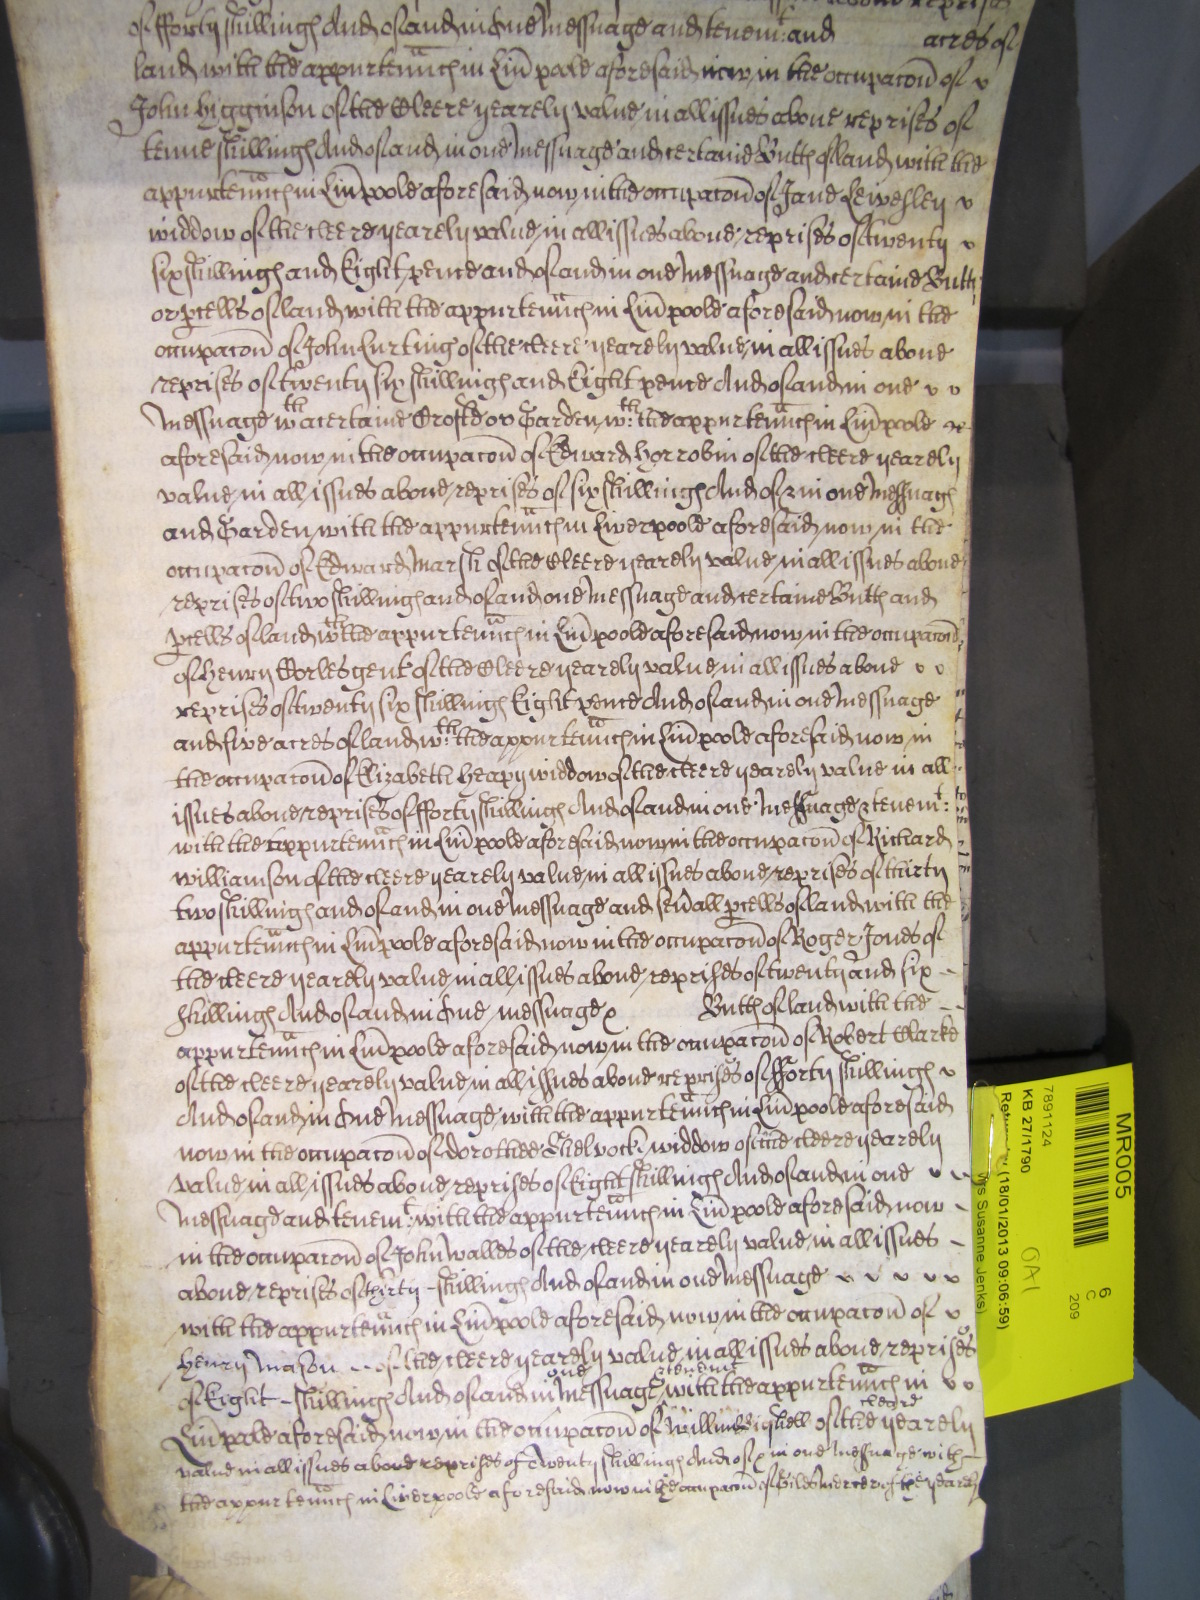 of fforty shillings And of and in one Messuage and tenemt: and acres of
land with the appurtenncs in Liu'poole aforesaid now in the occupacon of
John Higginson of the Cleere yearely value in all issues aboue reprises of
tenne shillings And of and in one Messuage and certaine Butts of land with the
appurtenncs in Liu'poole aforesaid now in the occupacon of Jane
widdow of the cleere yearely value in all issues aboue reprises of twenty
six shillings and Eight pence and of and in one Messuage and certaine Butts
or p'cells of land with the appurtenncs in Liu'poole aforesaid now in the
occupacon of John Lurting of the cleere yearely value in all issues aboue
reprises of twenty six shillings and Eight pence And of and in one
Messuage wth a certaine Crofte or Garden wth: the appurtenncs in Liu'poole
aforesaid now in the occupacon of Edward Horrobin of the cleere yearely
value in all issues aboue reprises of six shillings And of & in one Messuage
and Garden with the appurtenncs in Liverpoole aforesaid now in the
occupacon of Edward Marsh of the Cleere yearely value in all issues aboue
reprises of two shillings and of and one Messuage and certaine Butts and
p'cells of land wth the appurtenncs in Liu'poole aforesaid now in the occupacon
of Henry Corles gent of the Cleere yearely value in all issues aboue
reprises of twenty six shillings Eight pence And of and in one Messuage
and five acres of land wth: the appurtenncs in Liu'poole aforesaid now in
the occupacon of Elizabeth Heapy widdow of the cleere yearely value in all
issues aboue reprises of fforty shillings And of and in one Messuage & tenemt:
with the appurtenncs in Liu'poole aforesaid now in the occupacon of Richard
Williamson of the cleere yearely value in all issues aboue reprises of thirty
two shillings and of and in one Messuage and seu'all p'cells of land with the
appurtenncs in Liu'poole aforesaid now in the occupacon of Roger Jones of
the cleere yearely value in all issues aboue reprises of twenty and six
shillings And of and in one messuage Butts of land with the
appurtenncs in Liu'poole aforesaid now in the occupacon of Robert Clarke
of the cleere yearely value in all issues aboue reprises of fforty shillings
And of and in one Messuage with the appurtenncs in Liu'poole aforesaid
now in the occupacon of Dorothee widdow of the cleere yearely
value in all issues aboue reprises of Eight shillings And of and in one
Messuage and tenemt: with the appurtenncs in Liu'poole aforesaid now
in the occupacon of John Walles of the cleere yearely value in all issues
aboue reprises of thirty shillings And of and in one Messuage
with the appurtenncs in Liu'poole aforesaid now in the occupacon of
Henry Mason of the cleere yearely value in all issues aboue reprises
of Eight shillings And of and in one Messuage & tenemt with the appurtenncs in
Liu'poole aforesaid now in the occupacon of of the cleere yearely
value in all issues aboue reprises of Twenty shillings And of & in one Messuage with
the appurtenncs in Liverpoole aforesaid now in the occupacon of Giles Mercer of the yearely
MR005
6
C
209
7891124
KB 27/1790
(18/01/2013 09:06:59)
Ms Susanne Jenks)